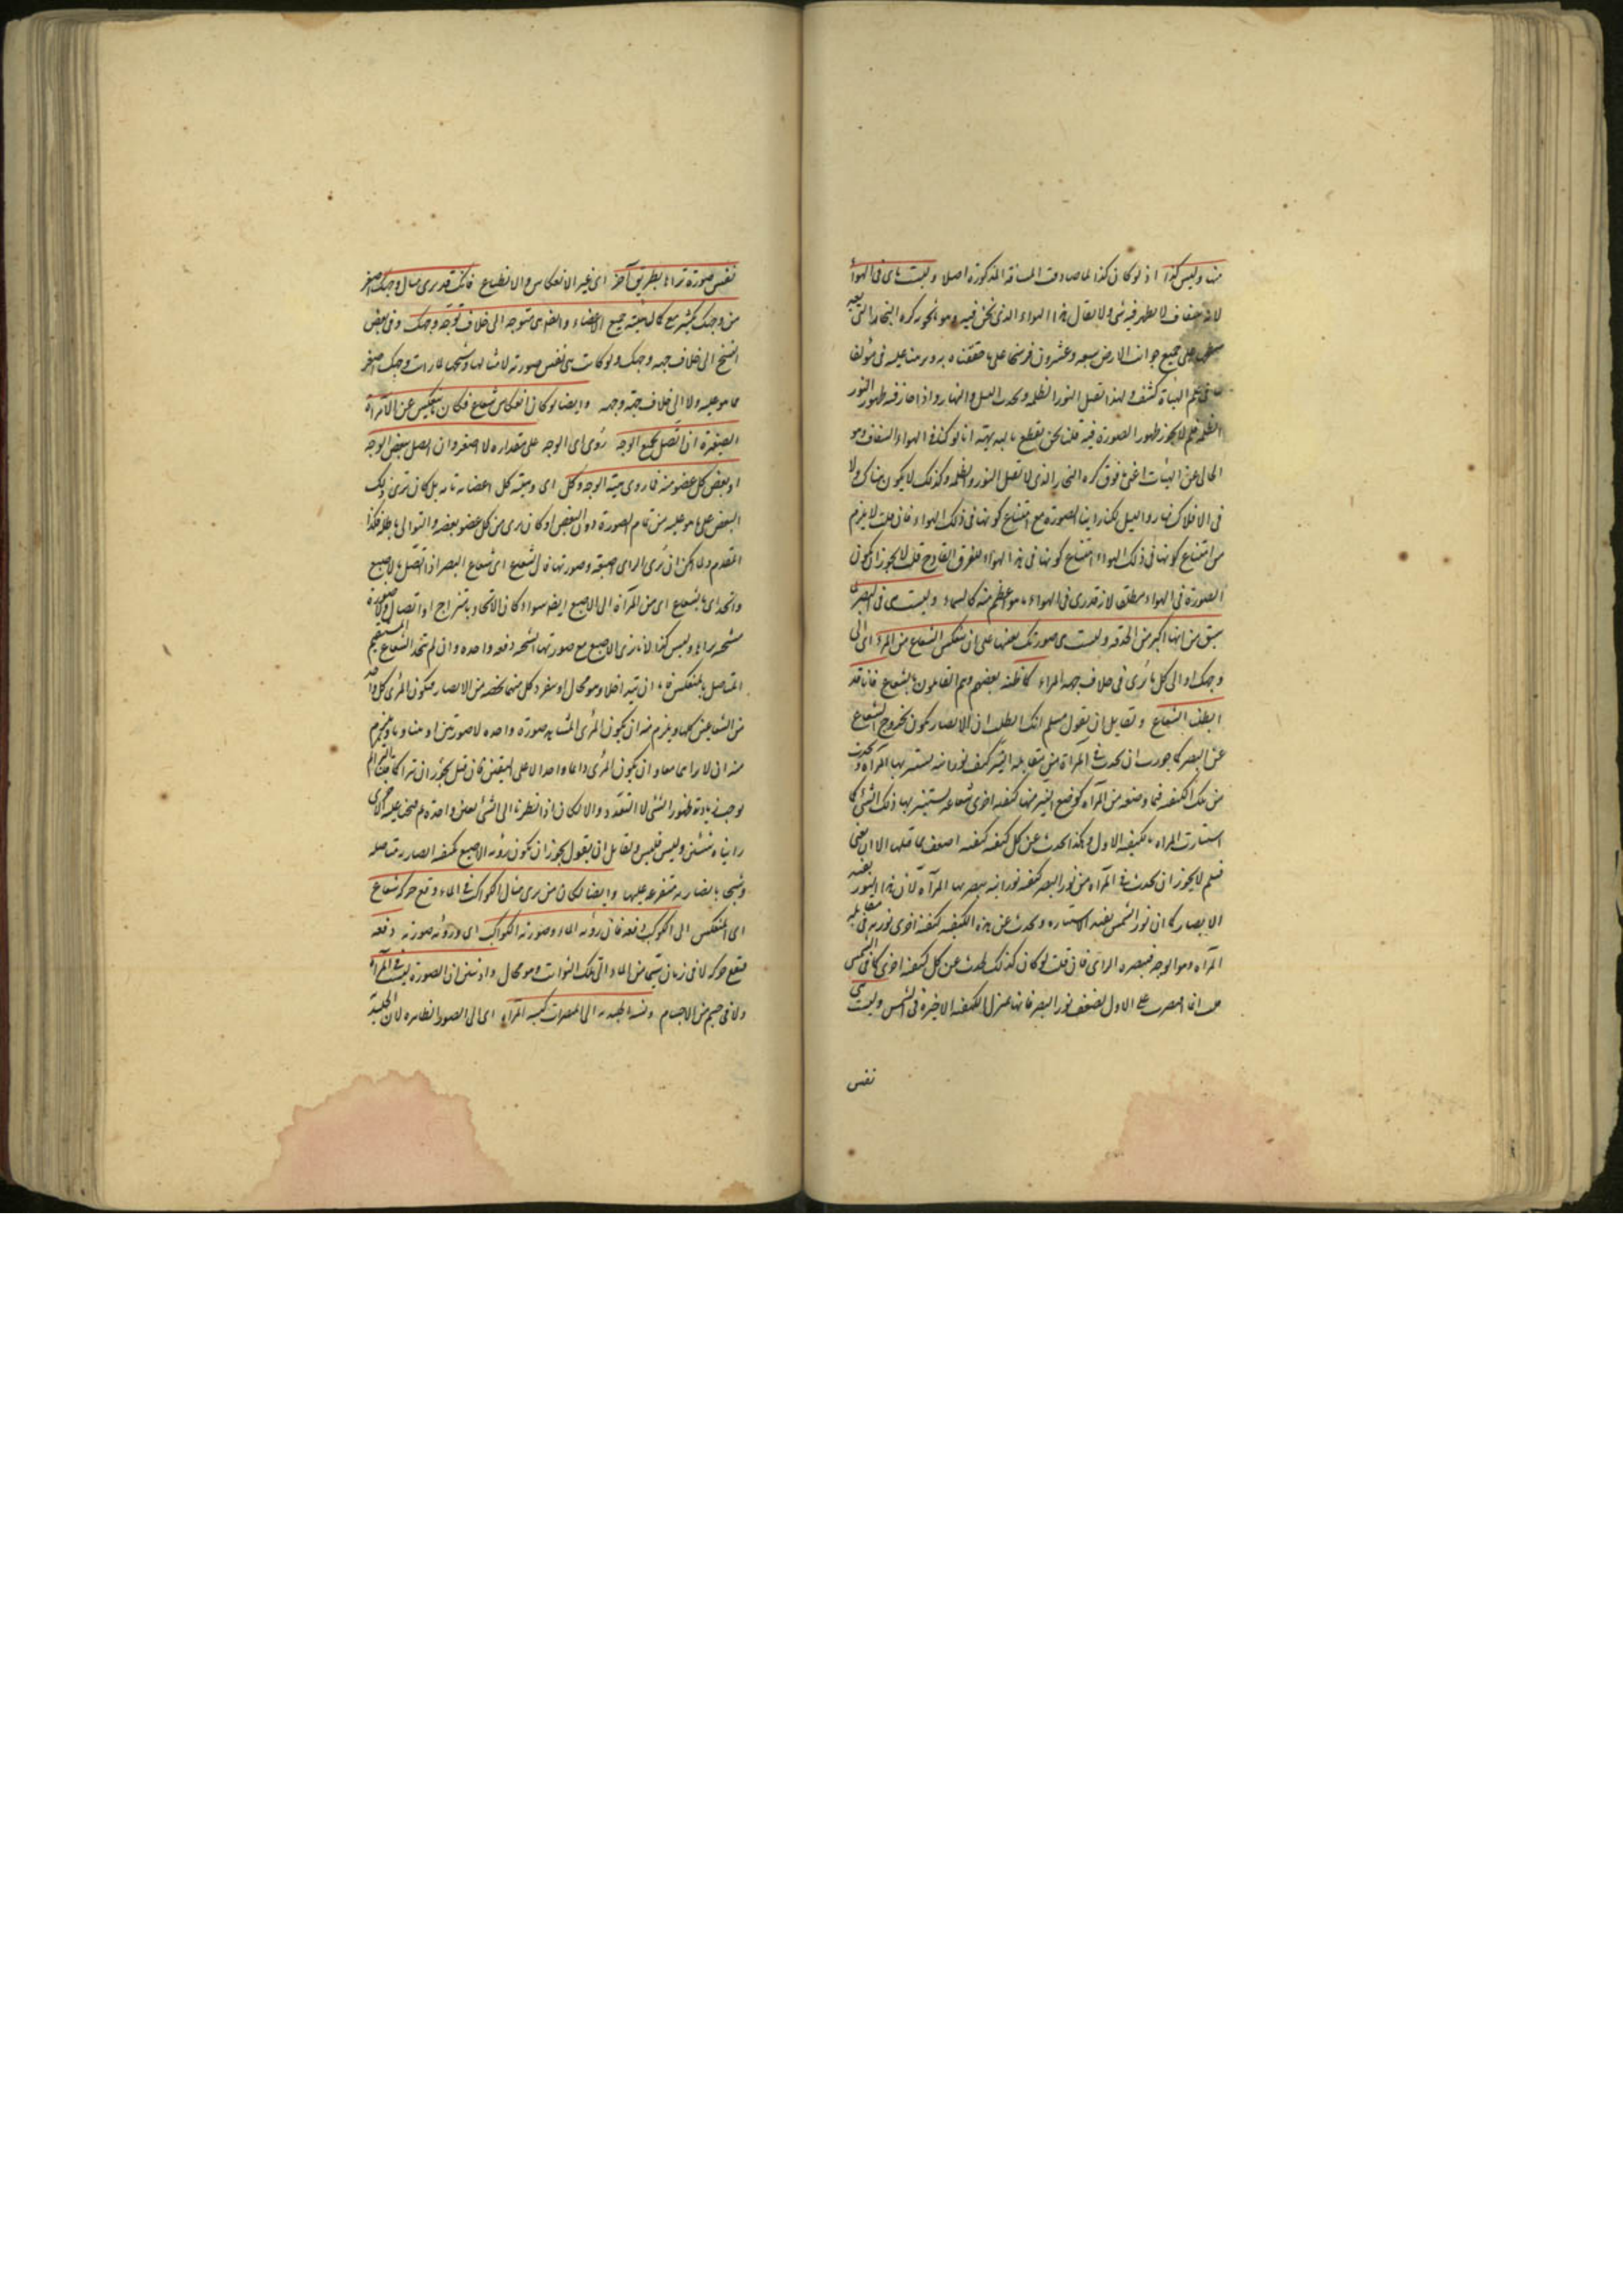 منها وليس كذا اذ لو كان كذا لما صادفت المسافة المذكورة اصلا وليست هى فى الهواء
لانه شفاف لا يظهر فيه شئ ولا يقال هذا الهواء الذى نحن فيه وهو المحرر كره البخار التى
على جميع جوانب الارض سبعه وعشرون فرسخا على ما حققناه وبرهنا عليه فى مؤلفا
فى علم الهيأة كثيف ولهذا تقبل النور والظلمه ويحدث الليل والنهار واذا جاز فيه ظهور النور
والظلمه فلم لا يجوز ظهور الصورة فيه قلت نحن نقطع بالبديهة انا لو كنا فى الهواء الشفاف وهو
الخالى عن الهيئات اعنى ما فوق كره البخار الذى لا تقبل النور والظلمه وكذلك لا يكون هناك ولا
فى الافلاك نهار والليل لكنا راينا الصورة مع امتناع كونها فى ذلك الهواء فان قلت لا يلزم
من امتناع كونها فى ذلك الهواء امتناع كونها فى هذا الهواء للفرق القادح قلت لا يجوز ان يكون
الصورة فى الهواء مطلقا لانه قد يرى فى الهواء ما هو اعظم منه كالسماء وليست هى فى البصر لما
سبق من انها اكبر من الحدقه وليست هى صورتك بعينها على ان ينعكس الشعاع من المرآة اى الى
وجهك او الى كل ما يُرى فى خلاف جهه المرآة كما ظنه بعضهم وهم القائلون بالشعاع فانا قد
ابطلنا الشعاع ولقايل ان يقول مسلم انك ابطلت ان الابصار يكون بخروج الشعاع
عن البصر كما جوزت ان يحدث فى المرآة من مقابله النير كيفيه نورانيه يستنير بها المرآة ويحدث
من تلك الكيفيه فيما وضعه من المرآة كوضع النير منها كيفيه اخرى شعاعيه يستنير بها ذلك الشئ كما
استنارت المرآة بالكيفيه الاول وهكذا يحدث عن كل كيفيه كيفيه اضعف مما قبلها الا ان يفنى
فلم لا يجوز ان يحدث فى المرآة من نور البصر كيفيه نورانيه يبصر بها المرآة لان هذا النور يفيد
الابصار كما ان نور الشمس يفيد الاستناره ويحدث عن هذه الكيفيه كيفيه اخرى نوريه فى مقابله
المرآة وهو الوجه فيبصره الرائى فان قلت لو كان كذلك لحدث عن كل كيفيه اخرى كما فى الشمس
انما اقتصرت على الاول لضعف نور البصر فانها بمنزله الكيفيه الاخيرة فى الشمس وليست هى
نفس
نفس صورته تراها بطريق آخر اى غير الانعكاس والانطباع فانك قد ترى مثال وجهك اصغر
من وجهك بكثير مع كمال هيئته جميع الاعضاء وايضا متوجه الى خلاف توجه وجهك وفى بعض
النسخ الى خلاف جهه وجهك ولو كانت هى نفس صورته لا مثالها وشبحها لما رات وجهك اصغر
مما هو عليه ولا الى خلاف جهة وجهه وايضا لو كان انعكاس شعاع فكان ما ينعكس عن المرآة
الصغيرة ان اتصل بجميع الوجه رُوى اى الوجه على مقداره لا اصغر وان اتصل ببعض الوجه
او ببعض كل عضو منه فما روى هيئة الوجه وكل اى وهيئة كل اعضائه تامه بل كان ترى ذلك
البعض على ما هو عليه من تمام الصورة دون البعض او كان يرى من كل عضو بعضه والتوالى باطله فكذا
المقدم ولما امكن ان يرى الرائى اصبعه وصورتها فان الشعاع اى شعاع البصر اذا اتصل بالاصبع
واتحد اى الشعاع اى من المرآة الى الاصبع ايضا سواء كان الاتحاد بامتزاج او اتصال ولا صورة
شبحيه يراها وليس كذا لانا نرى الاصبع مع صورتها الشبحيه دفعه واحده وان لم يتحد الشعاع المستقيم
المتصل بالمنعكس فاما ان تداخلا وهو محال او ينفرد كل منهما بحصه من الابصار فيكون المرئى كل واحد
من الشعاعين كلها ويلزم منه ان يكون المرئى المشاهد صورة واحده لا صورتين
منه ان لا يراى معا وان يكون المرئى دائما واحدا لا على التعين فان قيل يجوز ان
يوجب زيادة ظهور الشئ لا التعدد والا لكان اذا نظرنا الى الشئ بعين واحدة ثم فتحنا عليه الاخرى
رايناه شيئين وليس فليس ولقايل ان يقول يجوز ان يكون رؤيه الاصبع بكيفيه ابصاريه متاصله
وشبحها بابصاريه متفرعه عليها وايضا لكان من يرى مثال الكواكب فى الماء وقع حركه شعاع
اى المنعكس الى الكواكب دفعه فان رؤيه الماء وصورته الكواكب اى ورؤيه صورته دفعه
فتقع حركه لا فى زمان شبحها من الماء والى تلك الثوابت وهو محال واذ تبين ان الصورة ليست فى المرآة
ولا فى جسم من الاجسام ونسبه الجليديه الى المبصرات كنسبه المرآة اى الى الصور الظاهره لان الجليدية